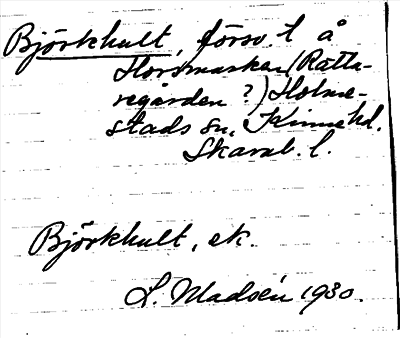 Björkhult, försv. t å
Horsmarken (Ratta-
regården ?) Holme-
stads sn, Kinne hd.
Skarab. l.
Björkhult, ek.
L. Madsén 1930.